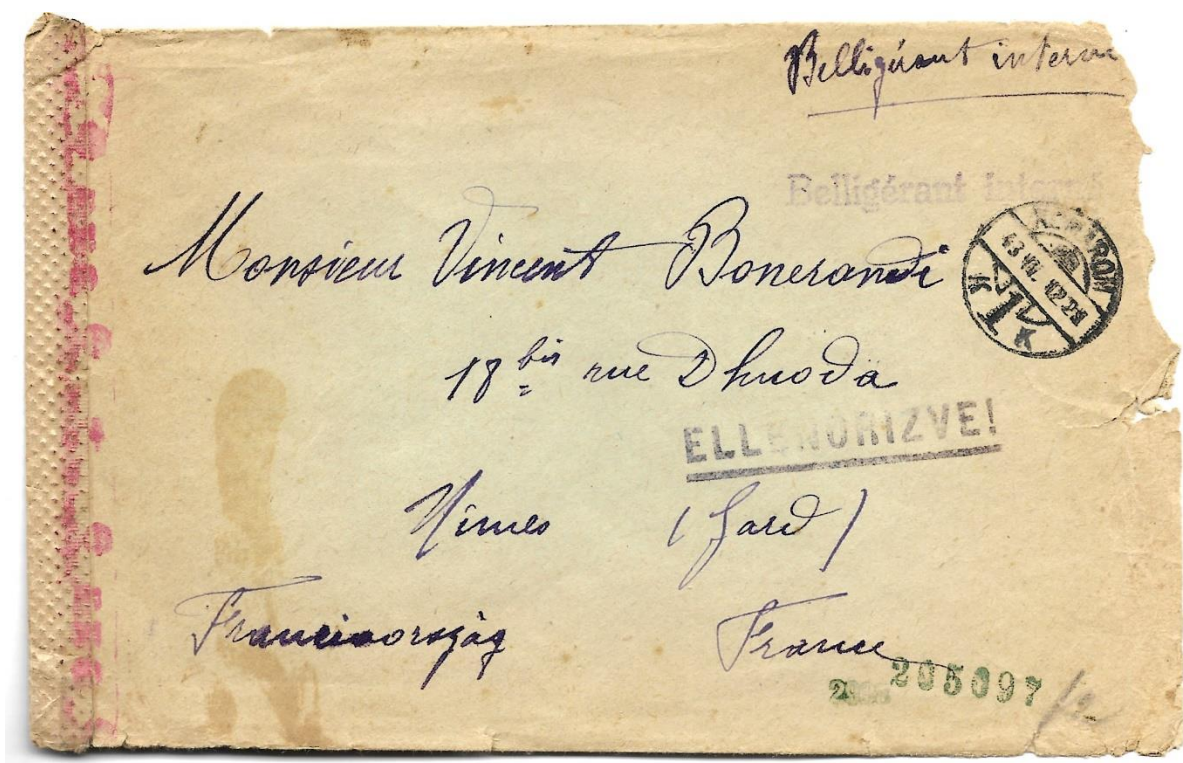 Belligérant interné
Belligérant interné
Monsieur Vincent Bonerandi
43 VII. 12.2
K 1 K
18 bis rue Dhuoda
ELLENŐRIZVE!
Nîmes (Gard)
Franciaország France
205097